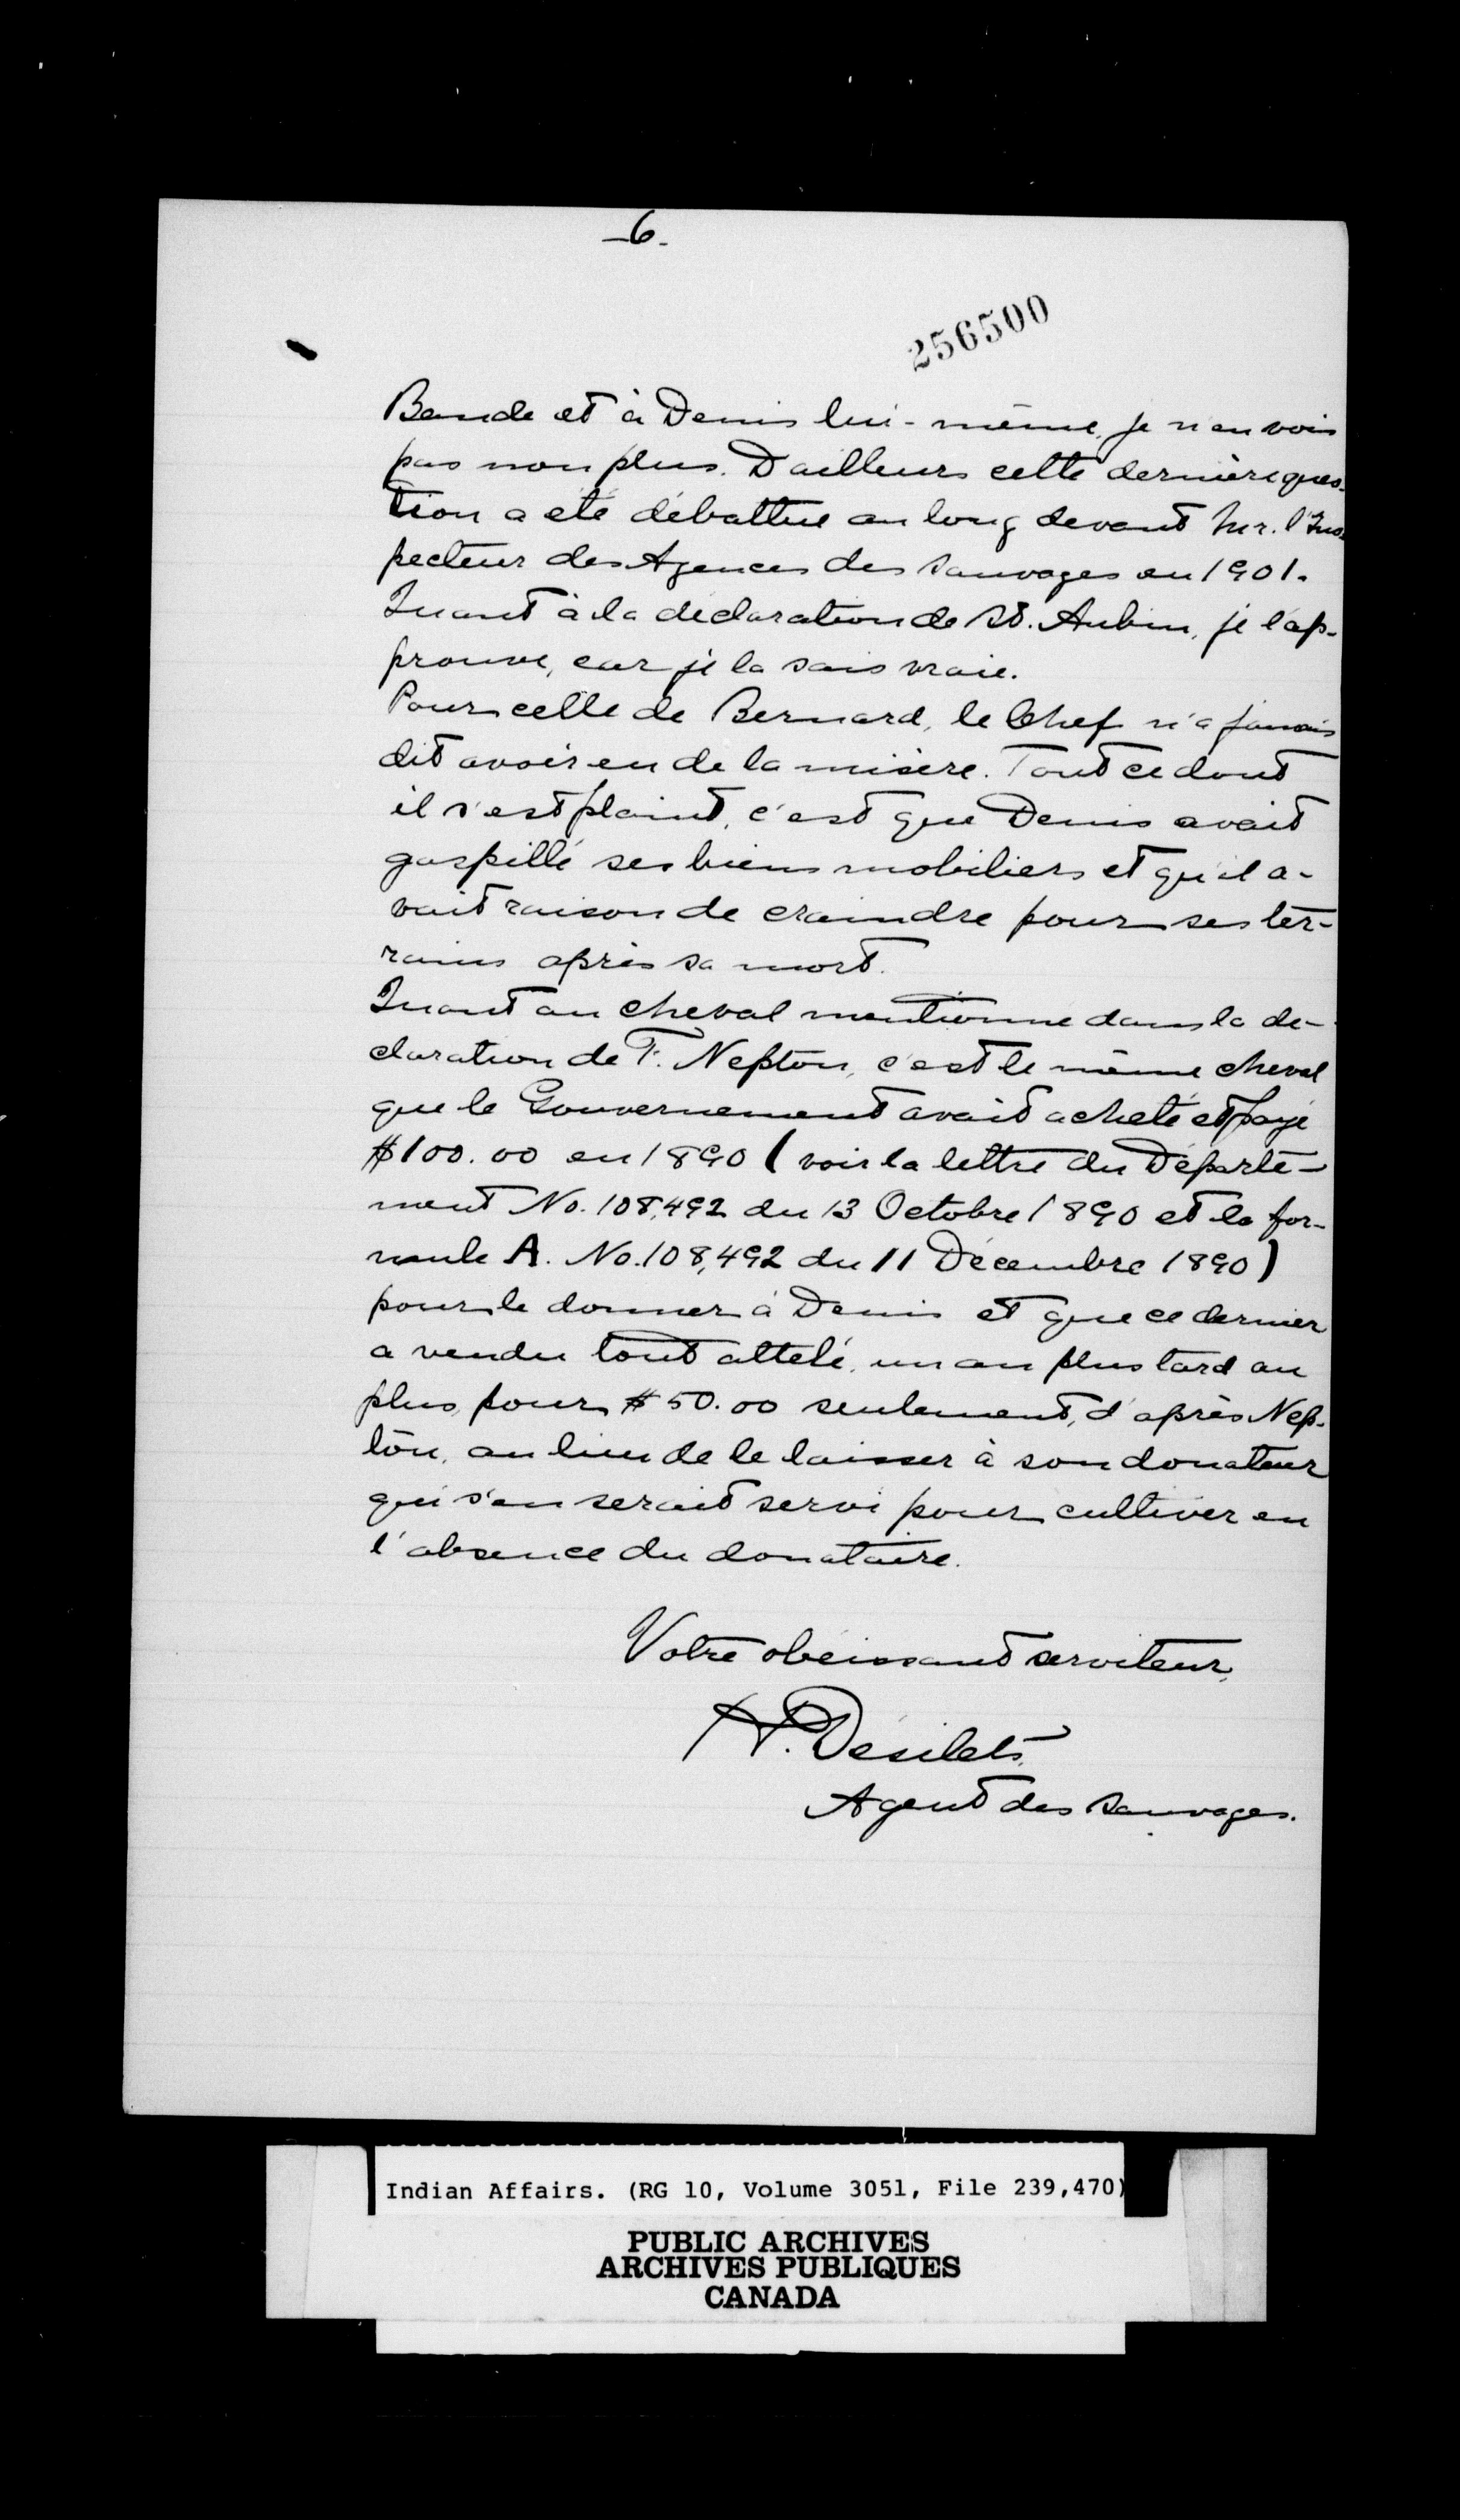 -6-
256500
Bande et à Denis lui-même, je n'en vois
pas non plus. D'ailleurs cette dernière ques-
tion a été débattue au long devant Mr. l'Ins-
pecteur des Agences des Sauvages en 1901.
Quant à la déclaration de St. Aubin, je l'ap-
prouve, car je la sais vraie.
Pour celle de Bernard, le Chef n'a jamais
dit avoir eu de la misère. Tout ce dont
il s'est plaint, c'est que Denis avait
gaspillé ses biens mobiliers et qu'il a-
vait raison de craindre pour ses ter-
rains après sa mort.
Quant au cheval mentionné dans la dé-
claration de F. Nepton, c'est le même cheval
que le Gouvernement avait acheté et payé
$100.00 en 1890 (voir la lettre du Départe-
ment No. 108,492 du 13 Octobre 1890 et la for-
mule A. No. 108,492 du 11 Décembre 1890)
pour le donner à Denis et que ce dernier
a vendu tout attelé, un an plus tard au
plus, pour $50.00 seulement, d'après Nep-
ton, au lieu de le laisser à son donateur
qui s'en serait servi pour cultiver en
l'absence du donataire.
Votre obéissant serviteur,
H. Désilets,
Agent des Sauvages.
Indian Affairs. (RG 10, Volume 3051, File 239,470)
PUBLIC ARCHIVES
ARCHIVES PUBLIQUES
CANADA